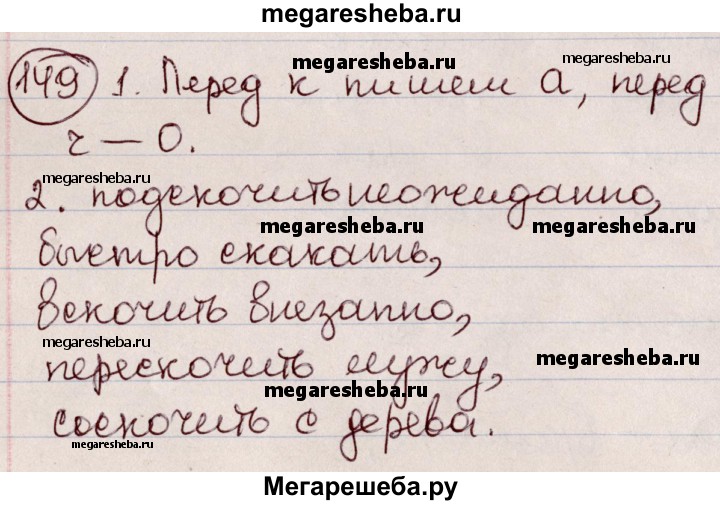 megaresheba.ru
megaresheba.ru
megaresheba.ru
149 1. Перед к пишем а, перед
ч — о.
megaresheba.ru
2. подскочить неожиданно,
megaresheba.ru
megaresheba.ru
быстро скакать,
вскочить внезапно,
megaresheba.ru
перескочить лужу,
megaresheba.ru
megaresheba.ru
соскочить с дерева.
megaresheba.ru
Мегарешеба.ру